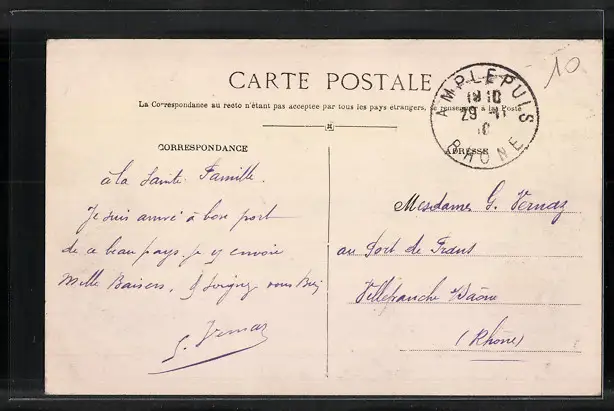 CARTE POSTALE
La Correspondance au recto n'étant pas acceptée par tous les pays étrangers, se renseigner à la Poste
AMPLEPUIS
RHONE
10
CORRESPONDANCE
ADRESSE
à la Sainte Famille.
Je suis arrivé à bon port
de ce beau pays, je y envoie
Mille Baisers, & Soignez vous Bien
G. Vernaz
Mesdames G. Vernaz
au Port de Frans
Villefranche s/Saône
(Rhône)